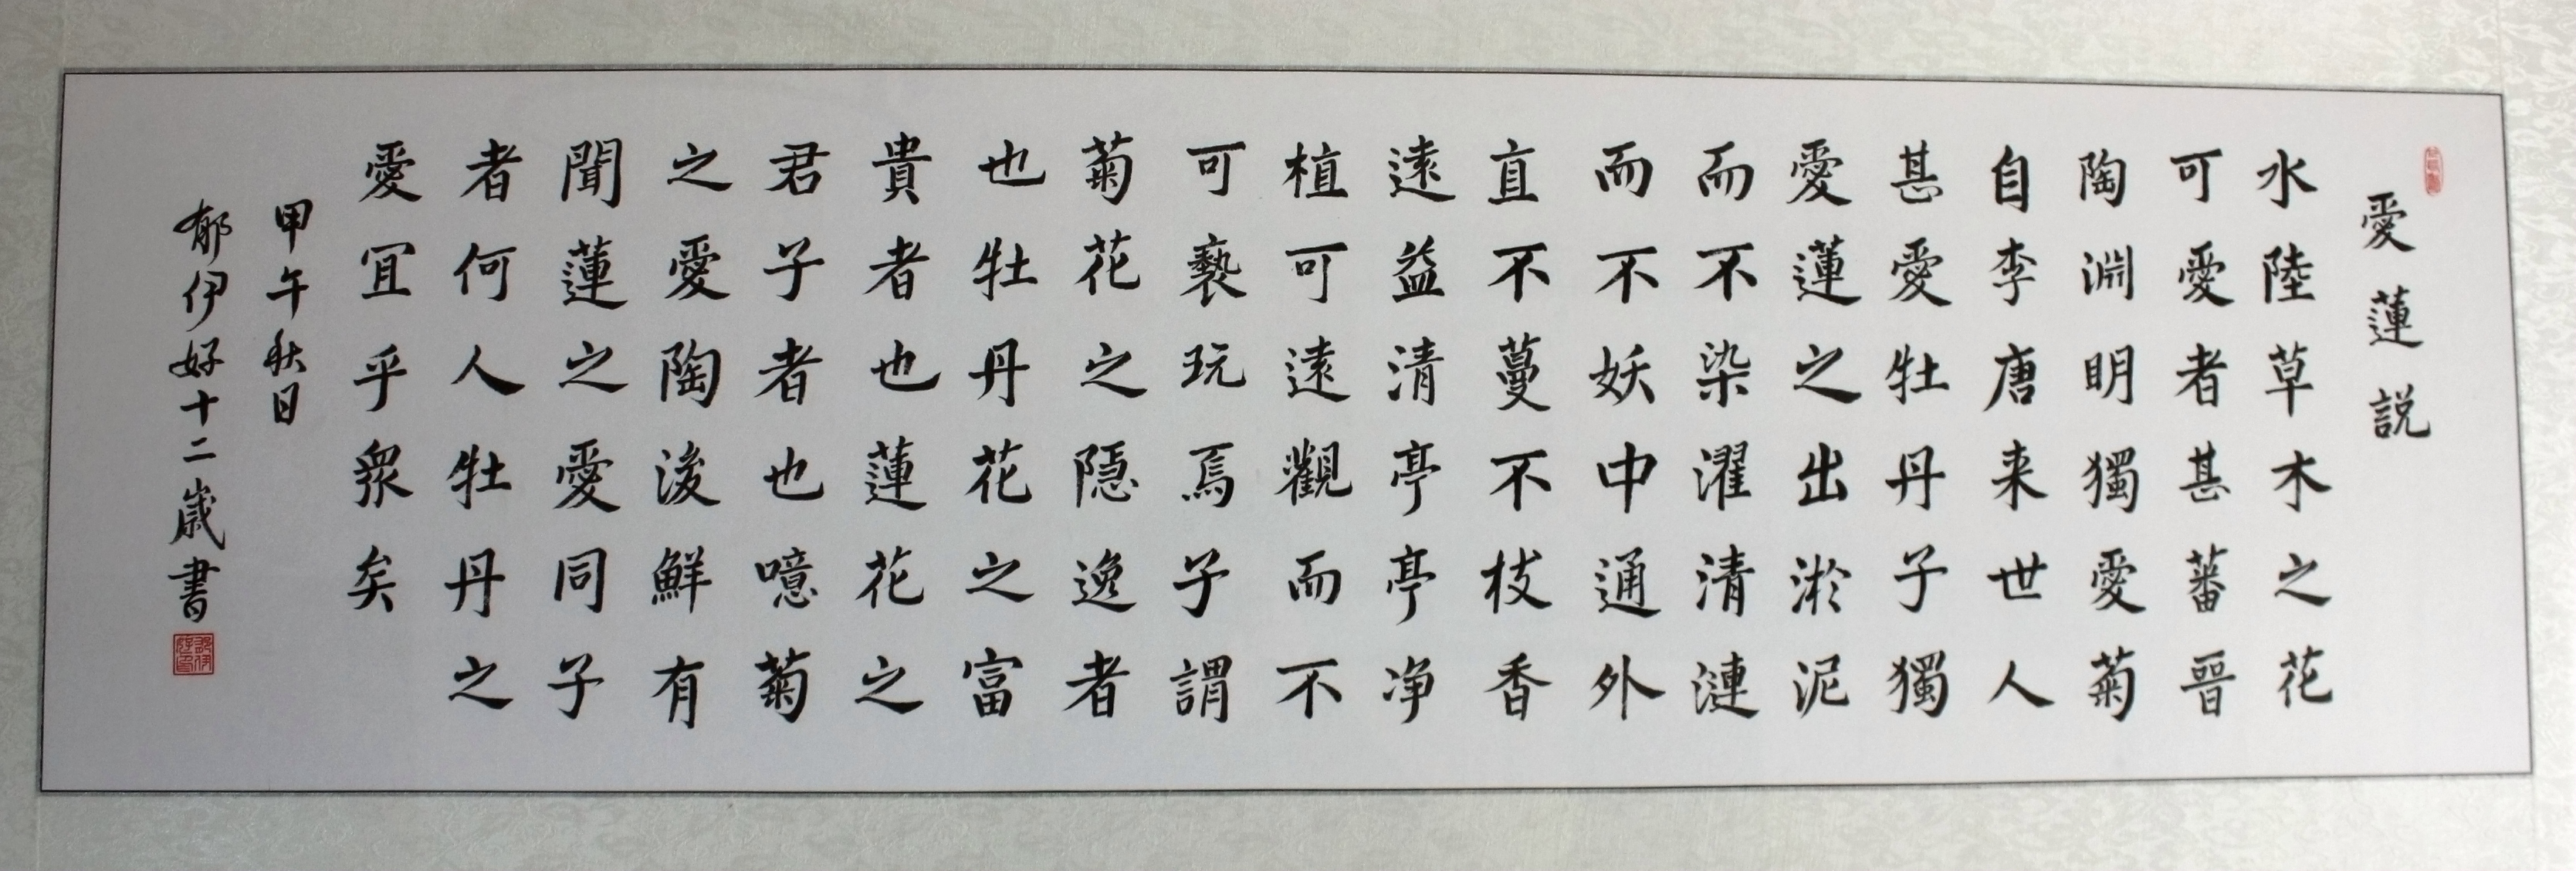 愛蓮説
水陸草木之花
可愛者甚蕃晉
陶淵明獨愛菊
自李唐来世人
甚愛牡丹子獨
愛蓮之出淤泥
而不染濯清漣
而不妖中通外
直不蔓不枝香
遠益清亭亭净
植可遠觀而不
可褻玩焉子謂
菊花之隱逸者
也牡丹花之富
貴者也蓮花之
君子者也噫菊
之愛陶後鮮有
聞蓮之愛同子
者何人牡丹之
愛宜乎衆矣
甲午秋日
郁伊好十二歲書